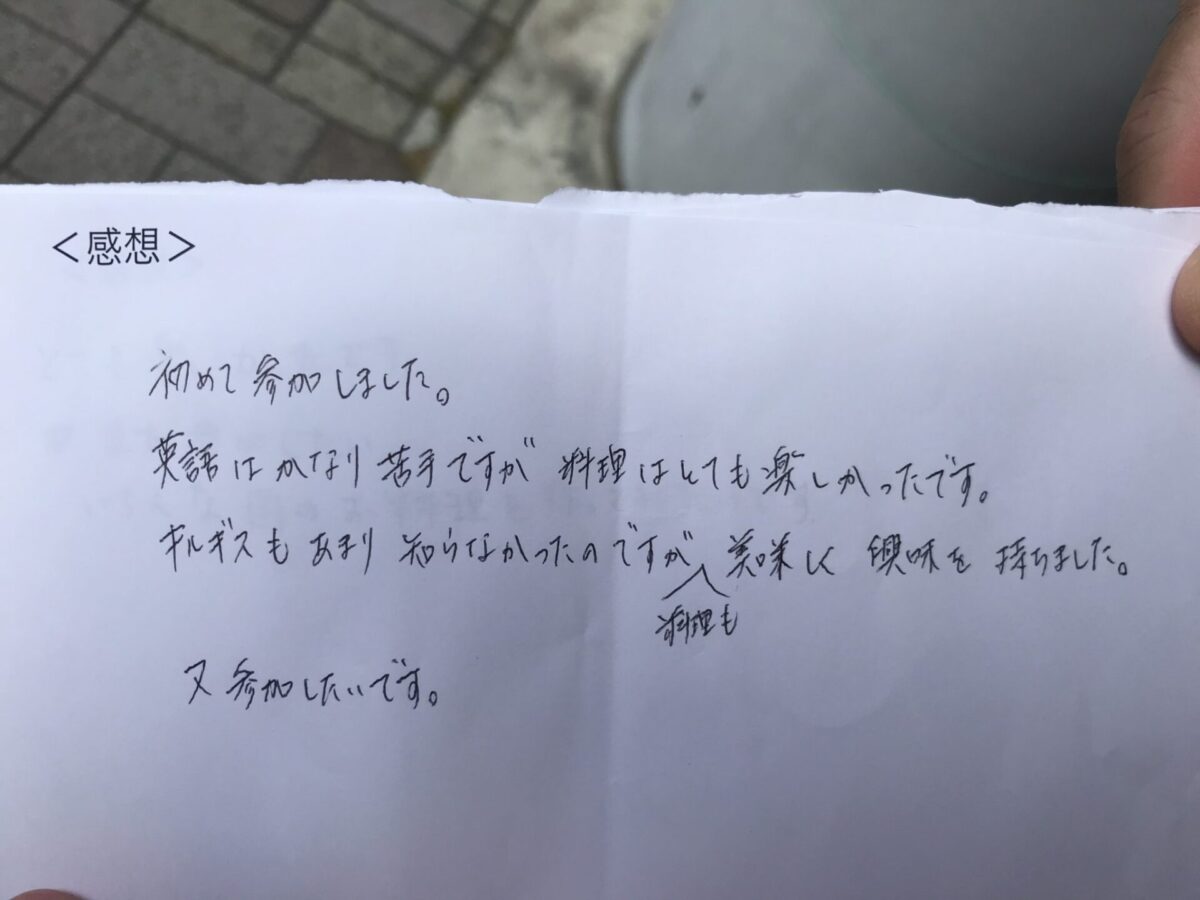 ＜感想＞
初めて参加しました。
英語はかなり苦手ですが 料理はとても楽しかったです。
キルギスもあまり知らなかったのですが 美味しく 興味を持ちました。
料理も
又参加したいです。